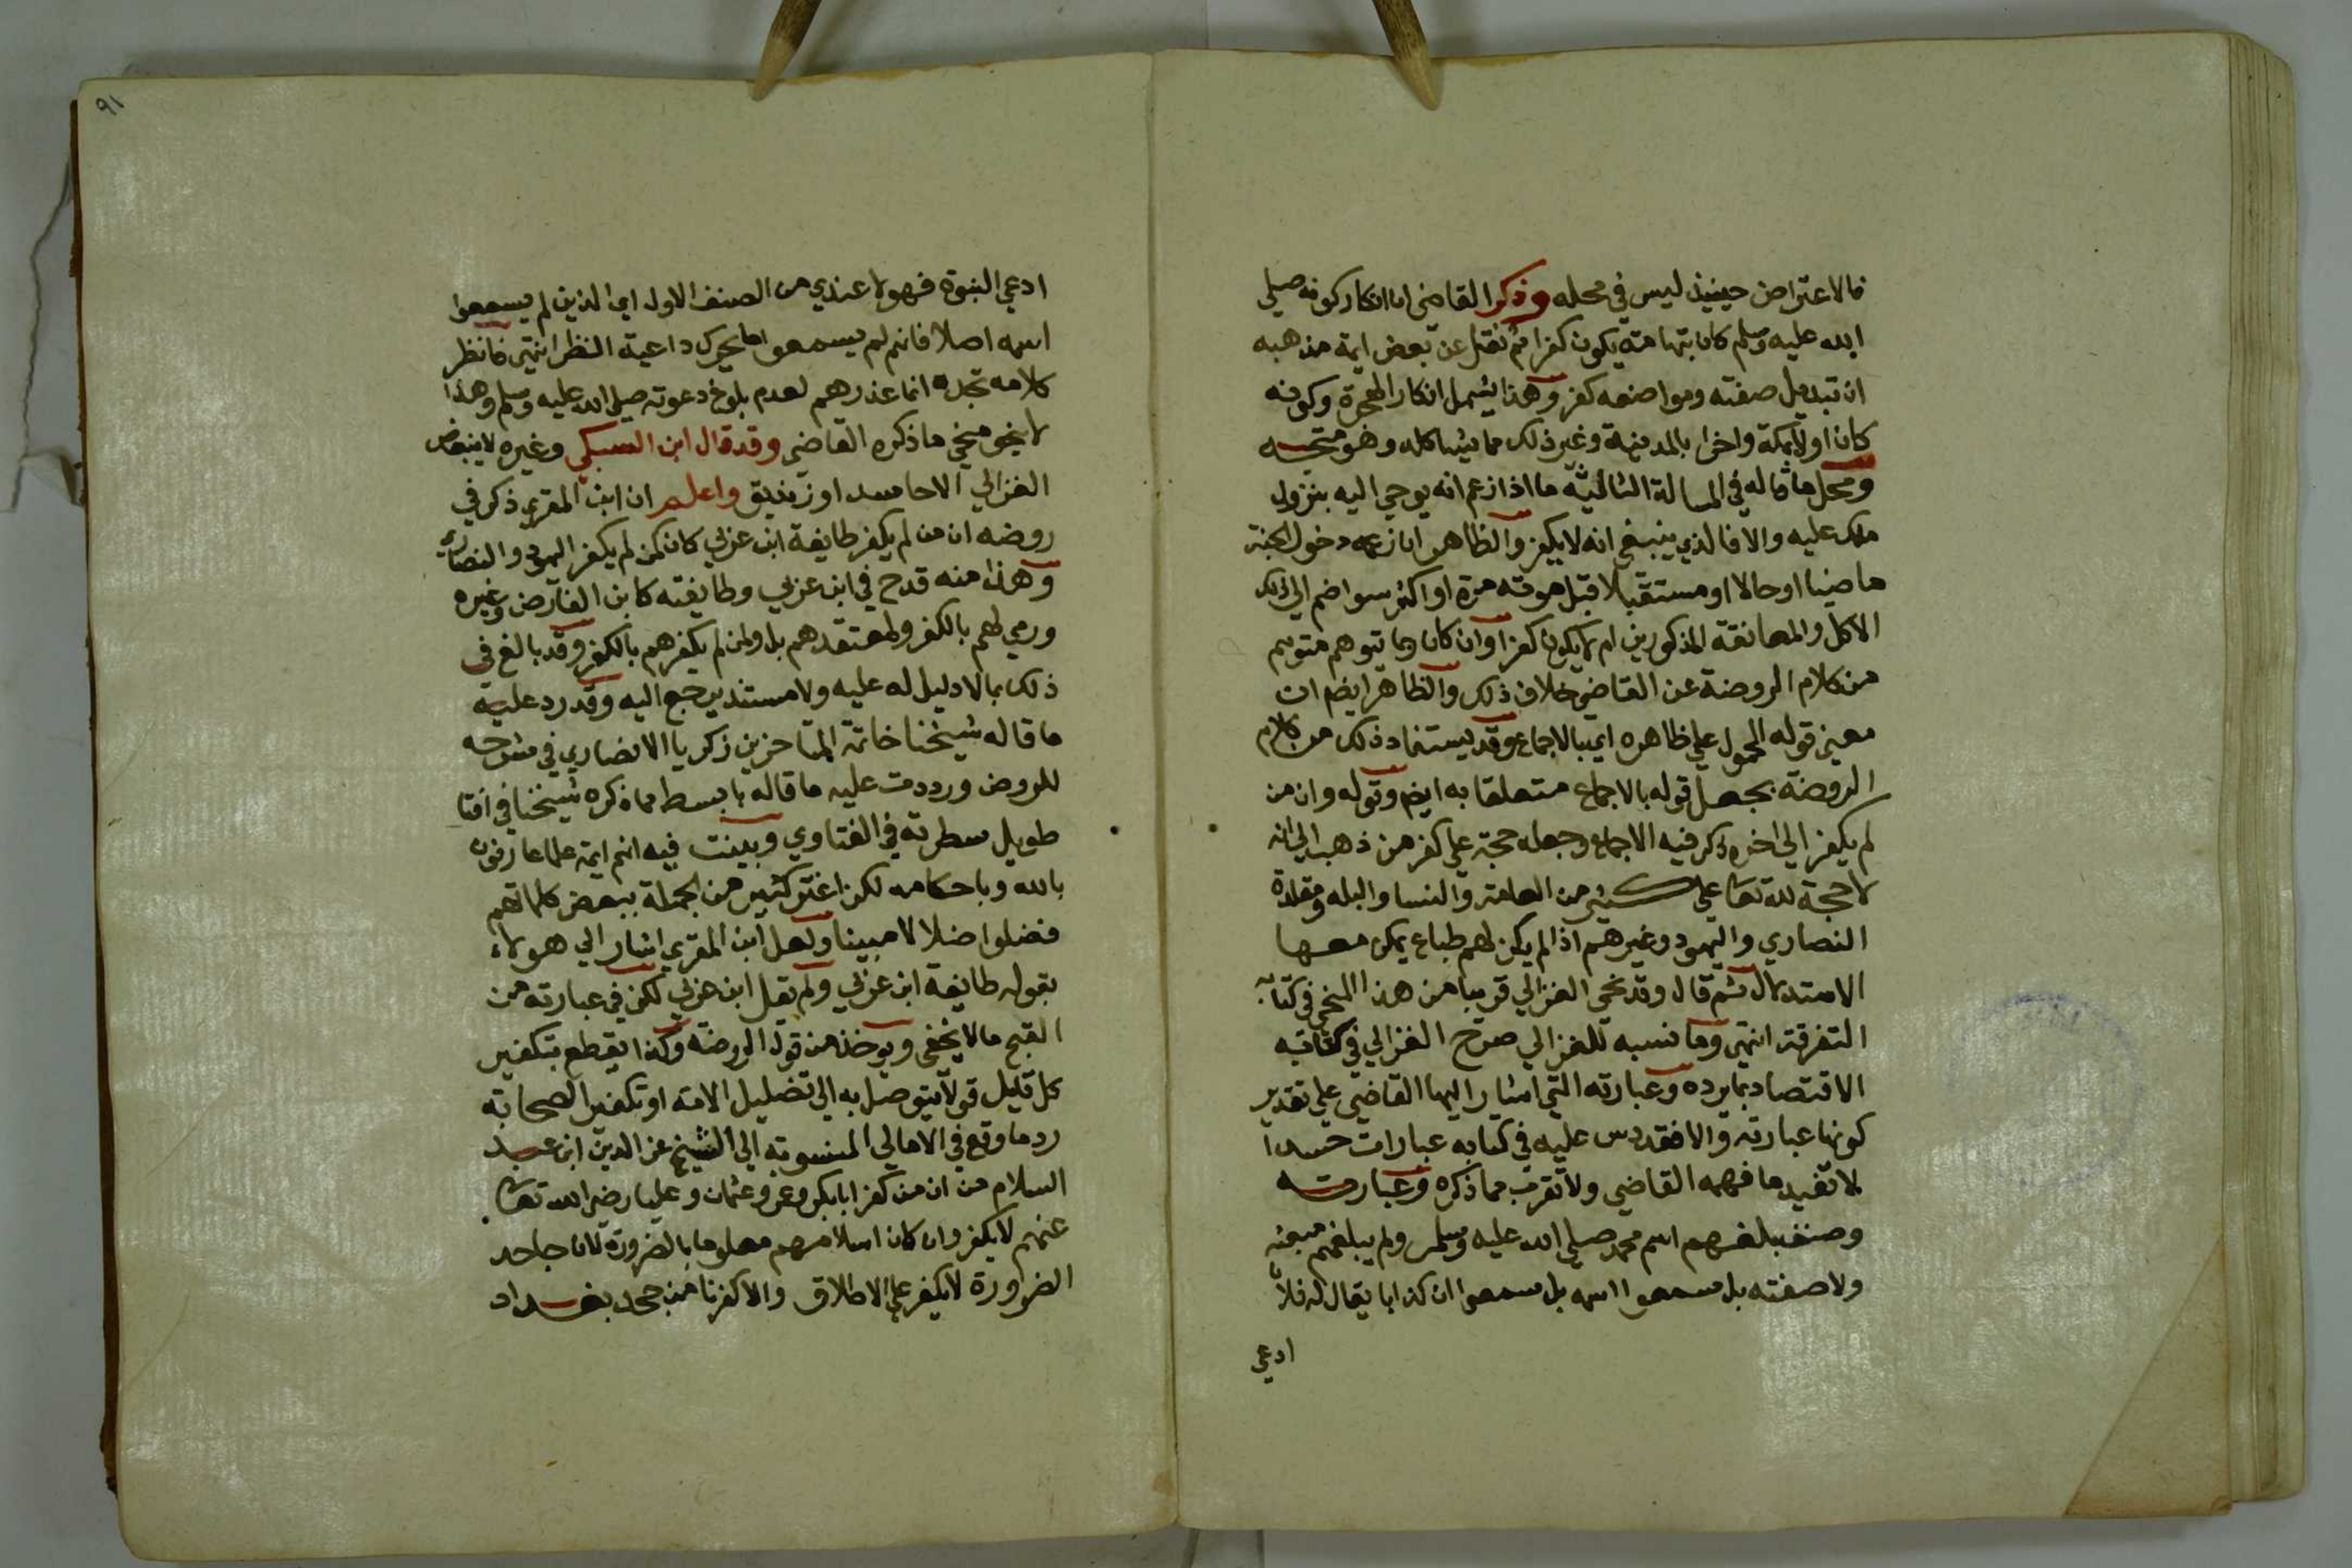 فالاعتراض حينيذ ليس في محله وذكر القاضي ان انكار كونه صلي
الله عليه وسلم كان بتهامة يكون كفرا ثم نقل عن بعض ايمة مذهبه
ان تبديل صفته ومواضعه كفر وهذا يشمل انكار الهجرة وكونه
كان اولا بمكة واخرا بالمدينة وغير ذلك مما يشاكله وهو متجه
ومحل ما قاله في المسالة الثانية ما اذا زعم انه يوحي اليه بنزول
ملك عليه والا فالذي ينبغي انه لا يكفر والظاهر ان زعمه دخول الجنة
ماضيا او حالا او مستقبلا قبل موته مرة او اكثر سوا ضم الي ذلك
الاكل والمعانقة المذكورين ام لا يكون كفرا وان كان وما توهم متوهم
من كلام الروضة عن القاضي خلاف ذلك والظاهر ايضم ان
معني قوله المحمول علي ظاهره اي بالاجماع وقد يستفاد ذلك من كلام
الروضة بجعل قوله بالاجماع متعلقا به ايضم وقوله وان من
لم يكفر الي اخره ذكر فيه الاجماع وجعله حجة علي كفر من ذهب الي انه
لا حجة لله تعا علي كثير من العامة والنسا والبله ومقلدة
النصاري واليهود وغيرهم اذا لم يكن لهم طباع يمكن معها
الاستدلال ثم قال وقد نحي الغزالي قريبا من هذا المنحي في كتابه
التفرقة انتهى وما نسبه للغزالي صرح الغزالي في كتابه
الاقتصاد بما يرده وعبارته التي اشار اليها القاضي علي تقدير
كونها عبارته والا فقد دس عليه في كتابه عبارات حسدا
لا تفيد ما فهمه القاضي ولا تقرب مما ذكره وعبارته
وصنف بلغهم اسم محمد صلي الله عليه وسلم ولم يبلغهم مبعثه
ولا صفته بل سمعوا اسمه بل سمعوا ان كذابا يقال له فلان
ادعي
٩١
ادعي النبوة فهولا عندي من الصنف الاول اي الذين لم يسمعوا
اسمه اصلا فانهم لم يسمعوا ما يحرك داعية النظر انتهى فانظر
كلامه تجده انما عذرهم لعدم بلوغ دعوته صلي الله عليه وسلم وهذا
لا ينحو منحي ما ذكره القاضي وقد قال ابن السبكي وغيره لا يبغض
الغزالي الا حاسد او زنديق واعلم ان ابن المقري ذكر في
روضه ان من لم يكفر طايفة ابن عربي كان كمن لم يكفر اليهود والنصاري
وهذا منه قدح في ابن عربي وطايفته كابن الفارض وغيره
ورمي لهم بالكفر ولمعتقدهم بل ولمن لم يكفرهم بالكفر وقد بالغ في
ذلك بما لا دليل له عليه ولا مستند يرجع اليه وقد رد عليه
ما قاله شيخنا خاتمة المتاخرين زكريا الانصاري في شرحه
للروض ورددت عليه ما قاله بابسط مما ذكره شيخنا في افتا
طويل سطرته في الفتاوي وبينت فيه انهم ايمة علما عارفون
بالله وباحكامه لكن اغتر كثير من الجهلة ببعض كلماتهم
فضلوا ضلالا مبينا ولعل ابن المقري اشار الي هولاء
بقوله طايفة ابن عربي ولم يقل ابن عربي لكن في عبارته من
القبح ما لا يخفي ويوخذ من قول الروضة وكذا يقطع بتكفير
كل قايل قولا يتوصل به الي تضليل الامة او تكفير الصحابة
رد ما وقع في الامالي المنسوبة الي الشيخ عز الدين ابن عبد
السلام من ان من كفر ابا بكر وعمر وعثمان وعليا رضي الله تعا
عنهم لا يكفر وان كان اسلامهم معلوما بالضرورة لان جاحد
الضرورة لا يكفر علي الاطلاق والا كفرنا من جحد بغداد